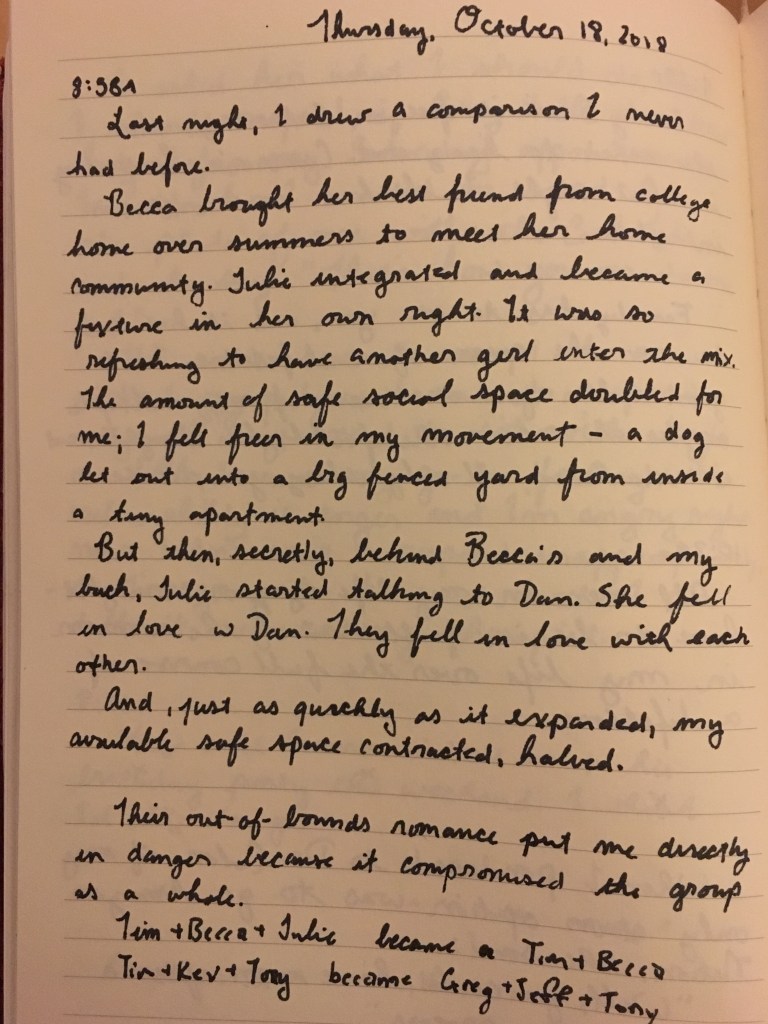 Thursday, October 18, 2018
8:58A
Last night, I drew a comparison I never
had before.
Becca brought her best friend from college
home over summers to meet her home
community. Julie integrated and became a
fixture in her own right. It was so
refreshing to have another girl enter the mix.
The amount of safe social space doubled for
me; I felt freer in my movement – a dog
let out into a big fenced yard from inside
a tiny apartment.
But then, secretly, behind Becca's and my
back, Julie started talking to Dan. She fell
in love w Dan. They fell in love with each
other.
And, just as quickly as it expanded, my
available safe space contracted, halved.
Their out-of-bounds romance put me directly
in danger because it compromised the group
as a whole.
Tim + Becca + Julie became a Tim + Becca
Tim + Kev + Tony became Greg + Jeff + Tony